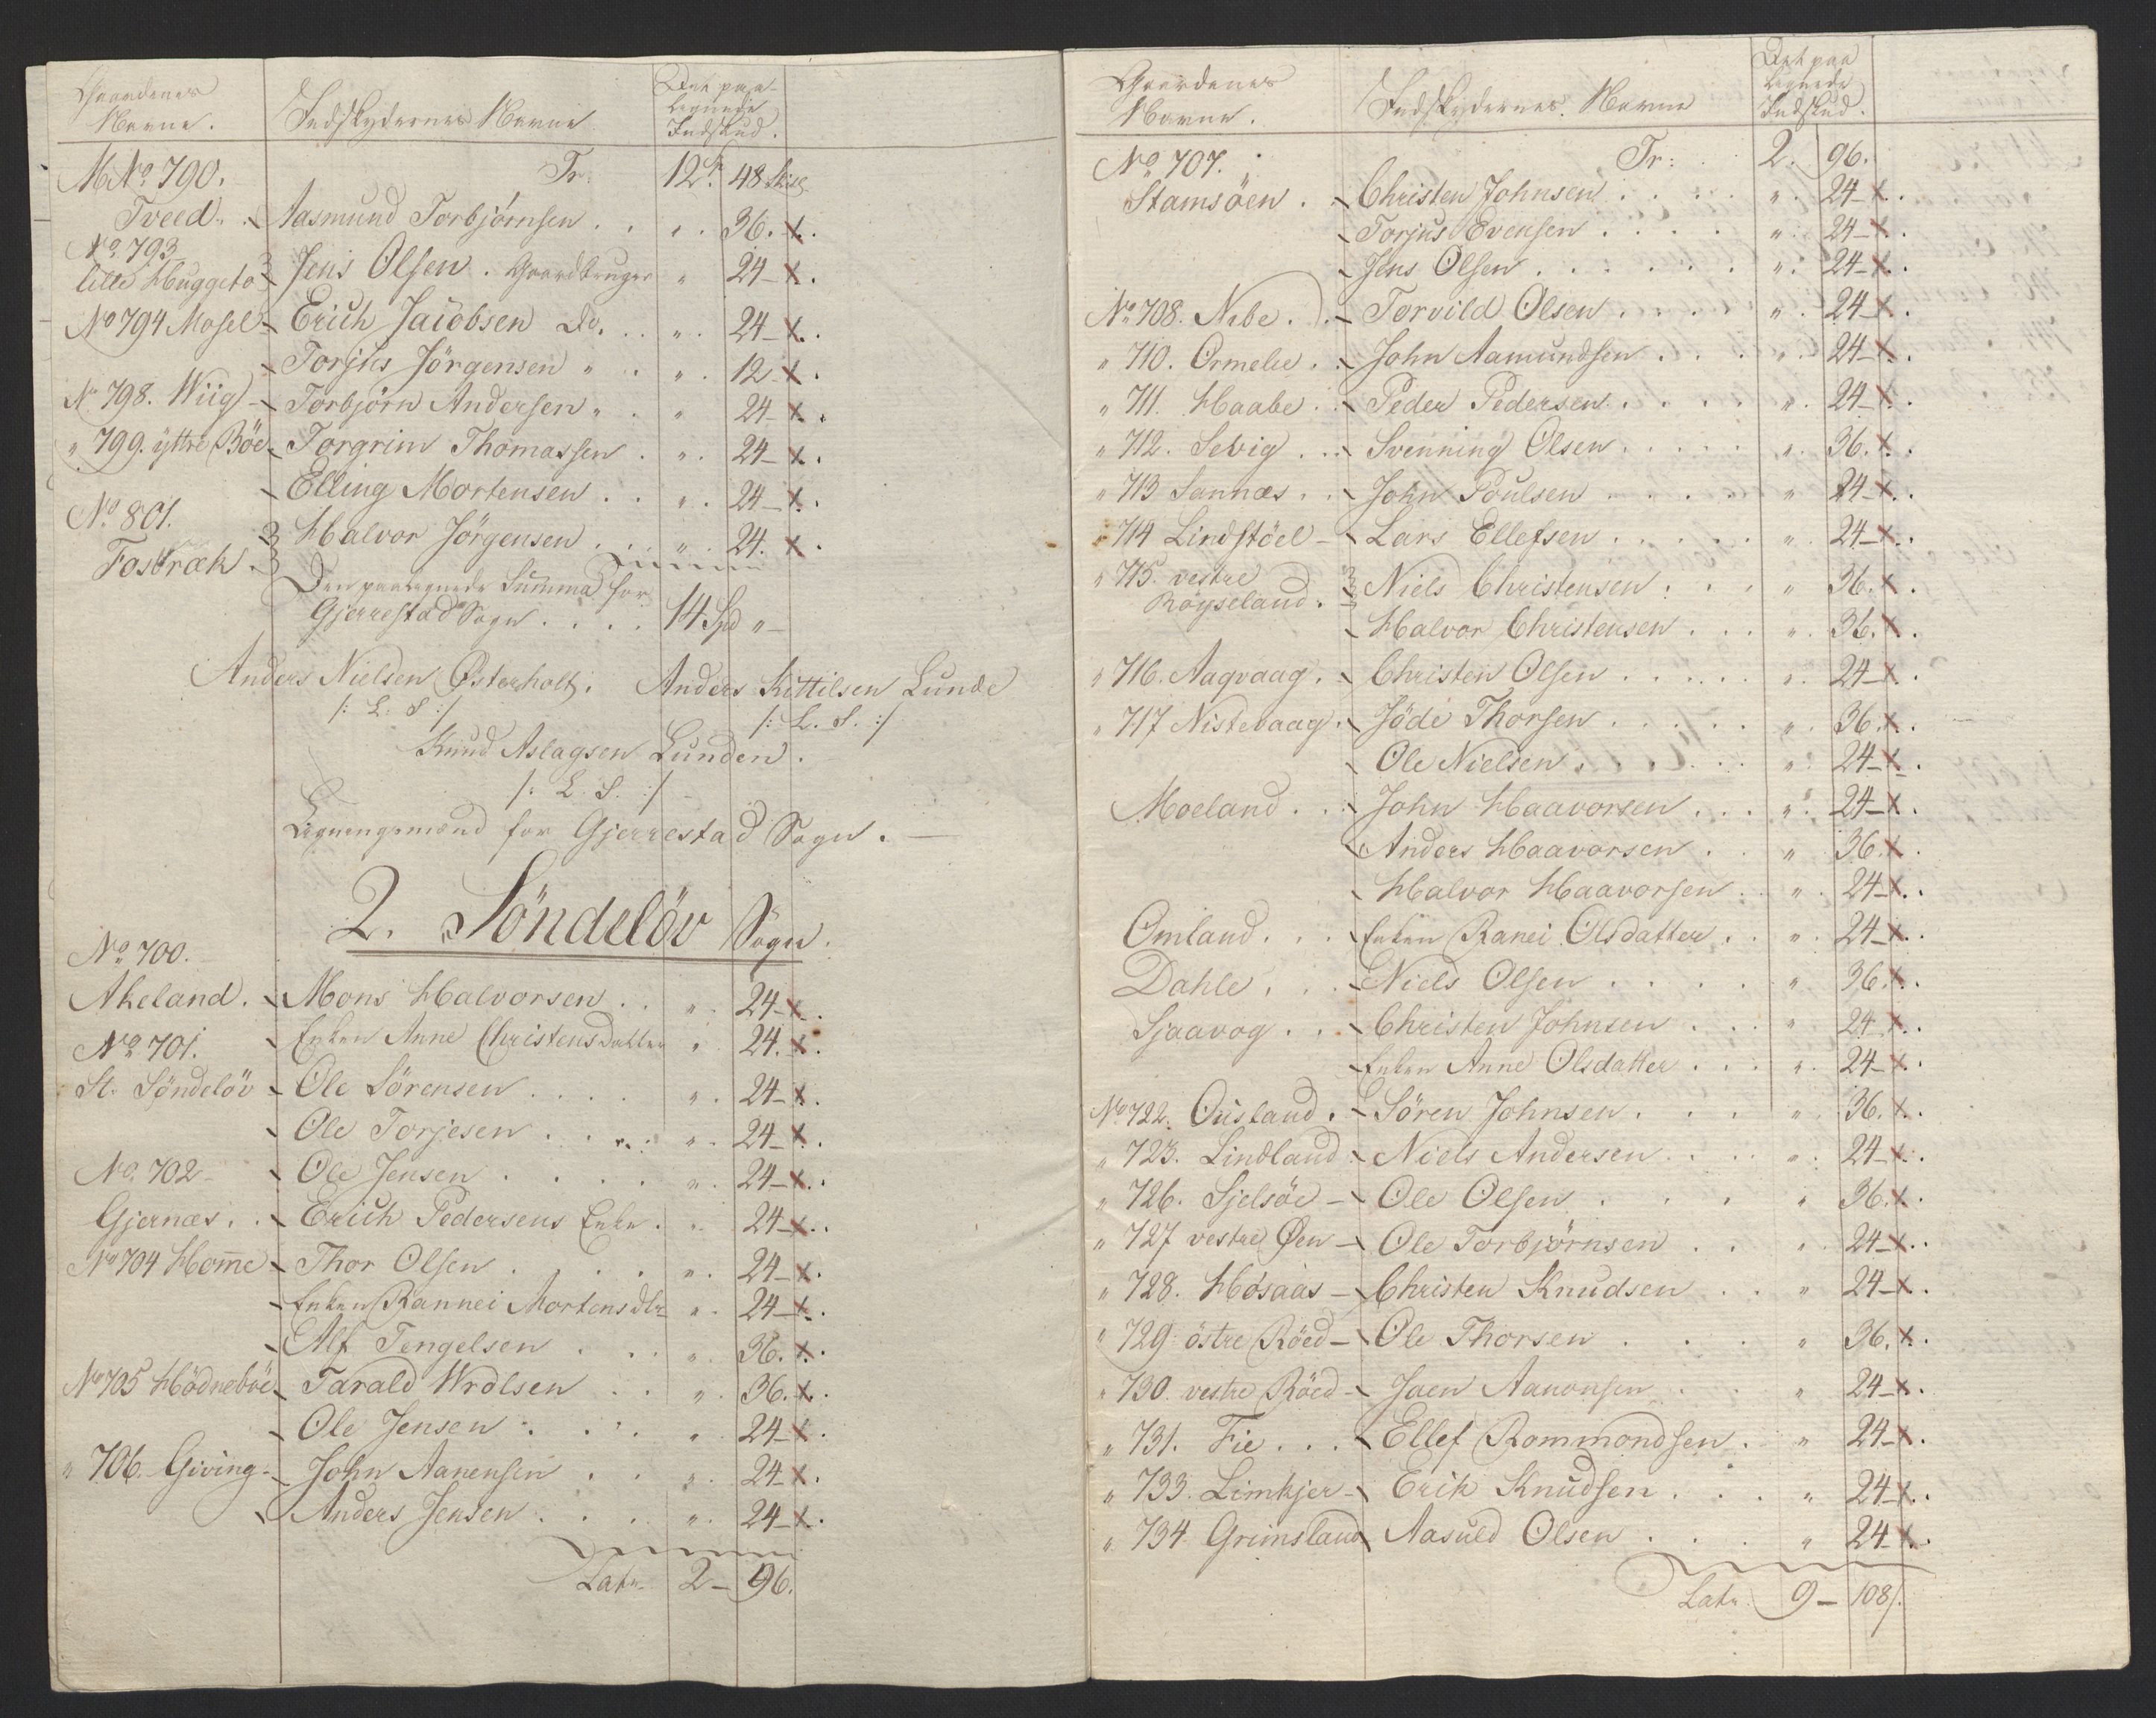 Gaardenes
Navne.
Indskydernes Navne
Det paa
lignede
Indskud.
MNo 790. Tr. 12 Sp. 48 Skill.
Tveed. Aasmund Torbjörnsen . . " . 36. x.
No 793
lille Huggeto Jens Olsen. Gaardbruger " 24 - x.
No 794 Mosel - Erich Jacobsen Do. . . " . 24 - x.
Torjus Jörgensen " . " . 12 - x.
No 798. Wiig - Torbjörn Andersen " . " 24 - x.
" 799. yttre Böe - Torgrim Thomassen . " . 24 - x.
Elling Mortensen . . " . 24 - x.
No 801.
Fostræk. Halvor Jörgensen . . " . 24. x.
Den paalignede Summa for
Gjerrestad Sogn . . . . 14 Spd " -
Anders Nielsen Østerholt. Anders Kittilsen Lunde
/: L. S :/ /: L. S. :/
Knud Aslagsen Lunden.
/: L. S. :/
Ligningsmænd for Gjerrestad Sogn. -
2. Söndelöv Sogn.
No 700.
Akeland. Mons Halvorsen . . " . 24 - x.
No 701. Enken Anne Christensdatter " 24. x.
St. Söndelöv - Ole Sörensen . . . . " . 24 - x.
Ole Torjesen . . . . " . 24 - x.
No 702 - Ole Jensen . . . . " . 24 - x.
Gjernæs. . Erich Pedersens Enke. " . 24 - x.
No 704 Homme - Thor Olsen . . . . " . 24 - x.
Enken Rannei Mortensdtr " . 24 - x.
Alf Tengelsen . . . " . 36. x.
No 705 Hödneböe Tarald Wrolsen . . " . 36. x.
Ole Jensen . . . " . 24 - x.
" 706. Giving - John Aanensen . . " . 24 - x.
Anders Jensen . . . " . 24 - x.
Latr. 2 - 96.
Gaardenes
Navne.
Indskydernes. Navne
Det paa
lignede
Indskud.
No 707. Tr: . 2. 96.
Stamsöen. Christen Johnsen . . . . " . 24 - x.
Torjus Evensen . . . . " . 24 - x.
Jens Olsen . . . . . " . 24 - x.
No 708. Nibe. . Torvild Olsen . . . . " . 24 - x.
" 710. Ormelie. . John Aamundsen . . . " . 24 - x.
" 711. Haabe. . Peder Pedersen . . . . " . 24 - x.
" 712. Sevig . . Svenning Olsen . . . . " . 36. x.
" 713 Sannæs . . John Poulsen . . . . " 24 - x.
" 714 Lindstöel - Lars Ellefsen . . . . " . 24 - x.
" 715. vestre
Röyseland. Niels Christensen . . . " 36. x.
Halvor Christensen . . . " . 36. x.
" 716. Aaqvaag. Christen Olsen . . . . " . 24 - x.
" 717 Nistevaag. Jödi Thorsen . . . . " . 36. x.
Ole Nielsen . . . . . " . 24 - x.
Moeland. . . John Haavorsen . . . " . 24 - x.
Anders Haavorsen . . " . 36. x.
Halvor Haavorsen . . " . 24 - x.
Omland. . . Enken Ranei Olsdatter . . " . 24 - x.
Dahle. . . Niels Olsen . . . . " . 36. x.
Sjaavog. . . Christen Johnsen . . . " . 24 x.
Enken Anne Olsdatter . . . " . 24 - x.
No 722. Ousland. - Sören Johnsen . . . " . 36. x.
" 723. Lindland. Niels Andersen . . . " . 24 - x.
" 726. Sjelsöe - Ole Olsen . . . " 36. x.
" 727 vestre Øen - Ole Torbjörnsen . . " . 24 - x.
" 728. Hosaas - Christen Knudsen . . " 24 - x.
" 729 östre Röed - Ole Thorsen . . . " 36. x.
" 730. vestre Röed - Joen Aanonsen . . " 24 - x.
" 731. Fie . . . Ellef Rommondsen . " 24 - x.
" 733. Limkjer - Erik Knudsen . . . " 24 - x.
" 734. Grimsland Aasuld Olsen . . . " 24 - x.
Latr. 9 - 108/.